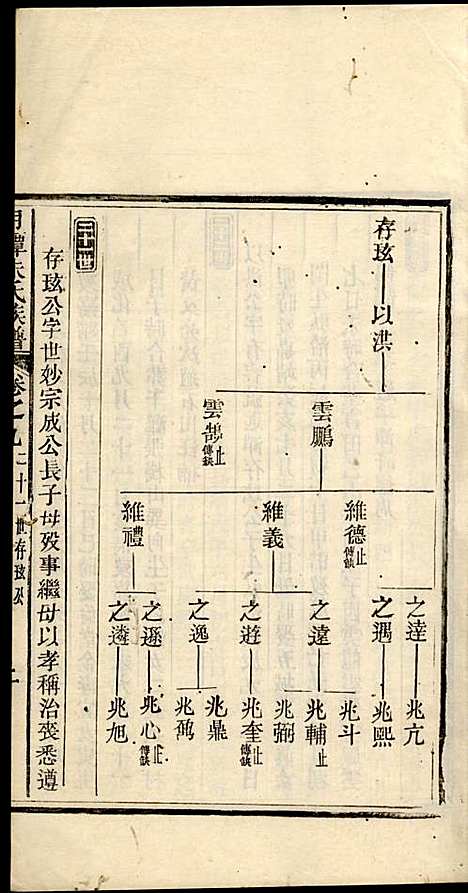 存玹
以洪
雲鵬
雲鵠止傳缺
維德止傳缺
維義
維禮
之達
之遇
之遠
之遊
之逸
之遜
之遴
兆亢
兆熙
兆斗
兆輔止
兆弼
兆奎止傳缺
兆鼎
兆蔿
兆心止傳缺
兆旭
二十一世
存玹公字世妙宗成公長子母歿事繼母以孝稱治喪悉遵
月潭朱氏族譜
卷之九
二十一世存玹